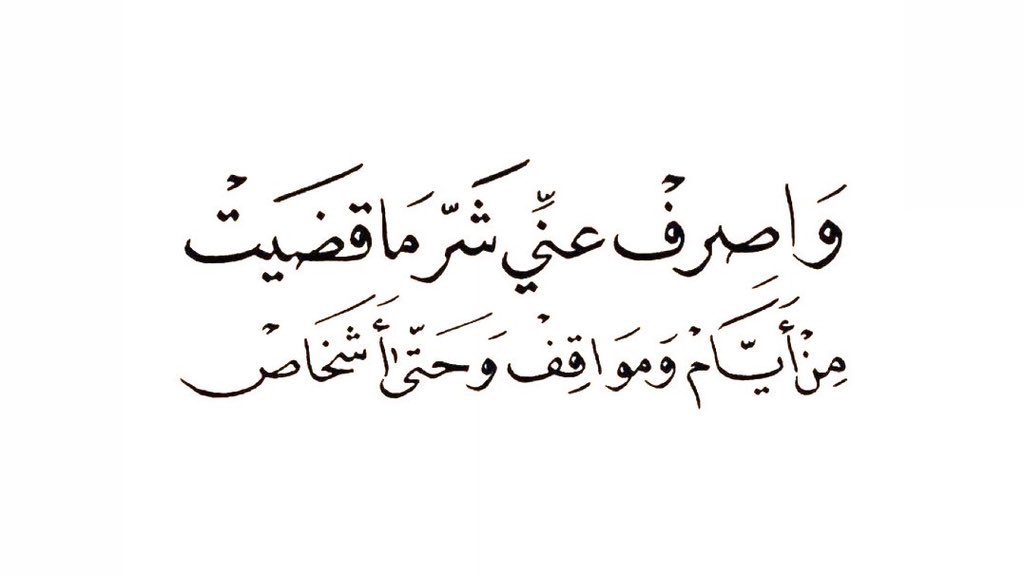 وَاصِرفْ عنِّي شَرّ مَا قضَيتْ
مِنْ أَيَّامْ وَموَاقِفْ وَحَتّىٰ أَشَخَاصْ